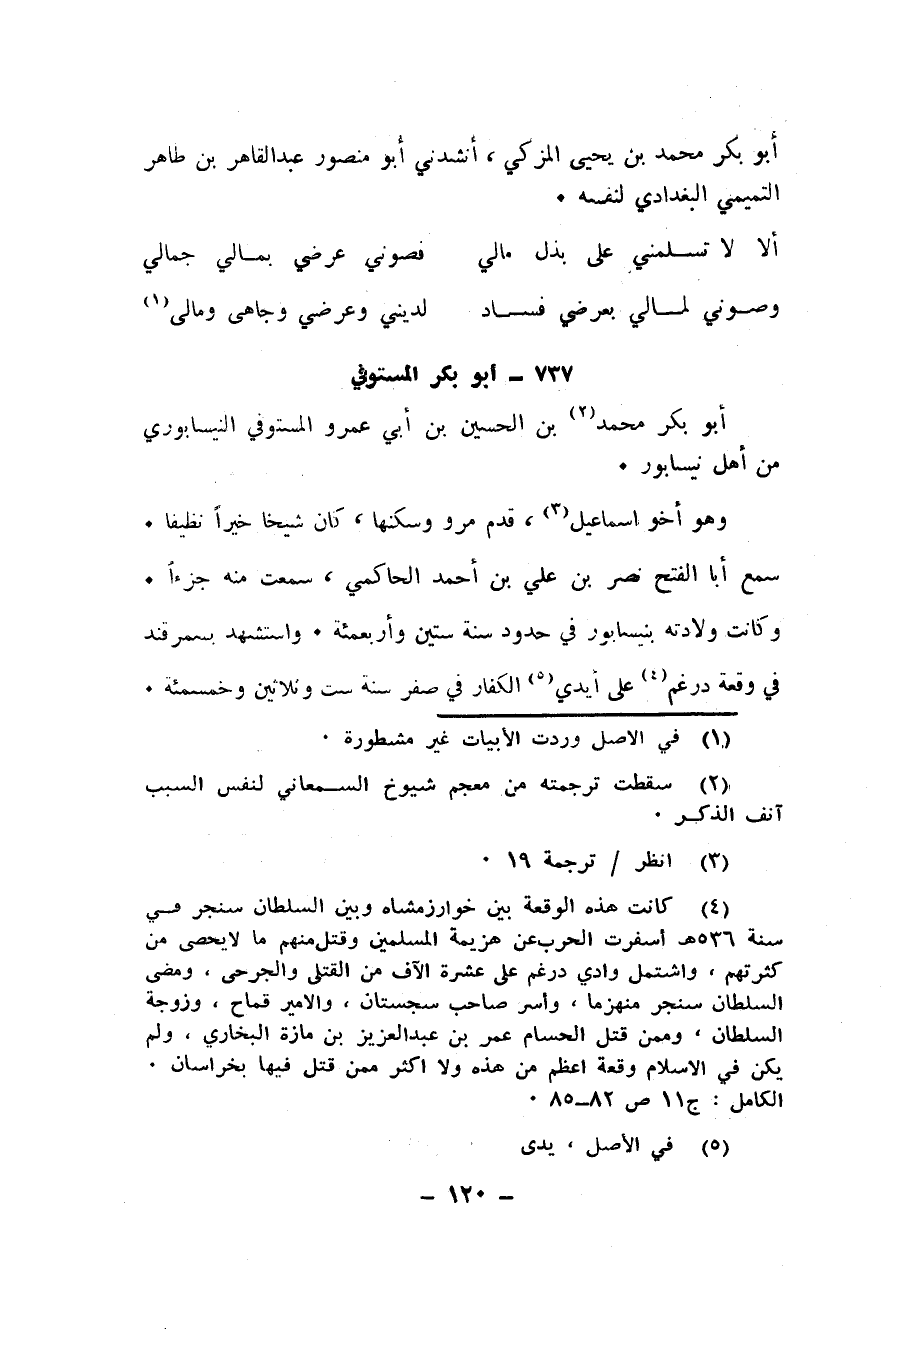 أبو بكر محمد بن يحيى المزكي ، أنشدني أبو منصور عبدالقاهر بن طاهر
التميمي البغدادي لنفسه •
ألا لا تســلمني على بذل مالي فصوني عرضي بمــالي جمالي
وصــوني لمــالي بعرضي فســـاد لديني وعرضي وجاهى ومالى(١)
٧٣٧ ــ أبو بكر المستوفي
أبو بكر محمد(٢) بن الحسين بن أبي عمرو المستوفي النيسابوري
من أهل نيسابور •
وهو أخو اسماعيل(٣) ، قدم مرو وسكنها ، كان شيخا خيراً نظيفا •
سمع أبا الفتح نصر بن علي بن أحمد الحاكمي ، سمعت منه جزءاً •
وكانت ولادته بنيسابور في حدود سنة ستين وأربعمئة • واستشهد بسمرقند
في وقعة درغم(٤) على أيدي(٥) الكفار في صفر سنة ست وثلاثين وخمسمئة •
(١) في الاصل وردت الأبيات غير مشطورة •
(٢) سقطت ترجمته من معجم شيوخ الســمعاني لنفس السبب
آنف الذكــر •
(٣) انظر / ترجمة ١٩ •
(٤) كانت هذه الوقعة بين خوارزمشاه وبين السلطان سنجر فــي
سنة ٥٣٦هـ أسفرت الحرب عن هزيمة المسلمين وقتل منهم ما لايحصى من
كثرتهم ، واشتمل وادي درغم على عشرة الآف من القتلى والجرحى ، ومضى
السلطان سنجر منهزما ، وأسر صاحب سجستان ، والامير قماح ، وزوجة
السلطان ، وممن قتل الحسام عمر بن عبدالعزيز بن مازة البخاري ، ولم
يكن في الاسلام وقعة اعظم من هذه ولا اكثر ممن قتل فيها بخراسان •
الكامل : ج١١ ص ٨٢ــ٨٥ •
(٥) في الأصل ، يدى
ــ ١٢٠ ــ